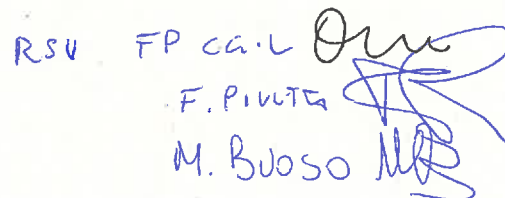 RSU FP CGIL
F. PIVETTA
M. BUOSO